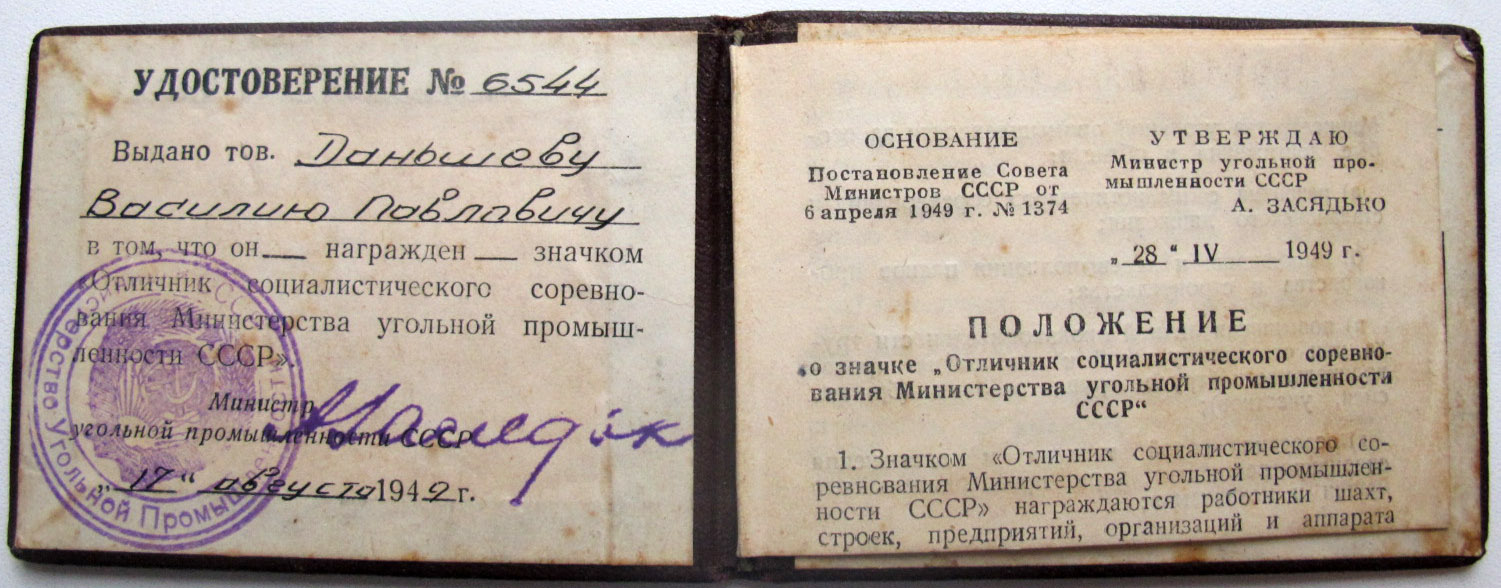 УДОСТОВЕРЕНИЕ № 6544
Выдано тов. Даньшеву
Василию Павлавичу
в том, что он награжден значком
«Отличник социалистического соревно-
вания Министерства угольной промыш-
ленности СССР».
Министр
угольной промышленности СССР
„17“ августа 1949 г.
Министерство Угольной Промышленности СССР
ОСНОВАНИЕ
Постановление Совета
Министров СССР от
6 апреля 1949 г. № 1374
УТВЕРЖДАЮ
Министр угольной про-
мышленности СССР
А. ЗАСЯДЬКО
„28“ IV 1949 г.
ПОЛОЖЕНИЕ
о значке „Отличник социалистического соревно-
вания Министерства угольной промышленности
СССР“
1. Значком «Отличник социалистического со-
ревнования Министерства угольной промышлен-
ности СССР» награждаются работники шахт,
строек, предприятий, организаций и аппарата